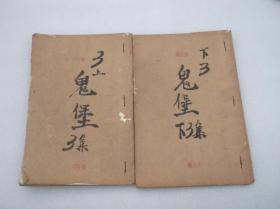 3上
鬼堡
3集
下3
鬼堡
下3集